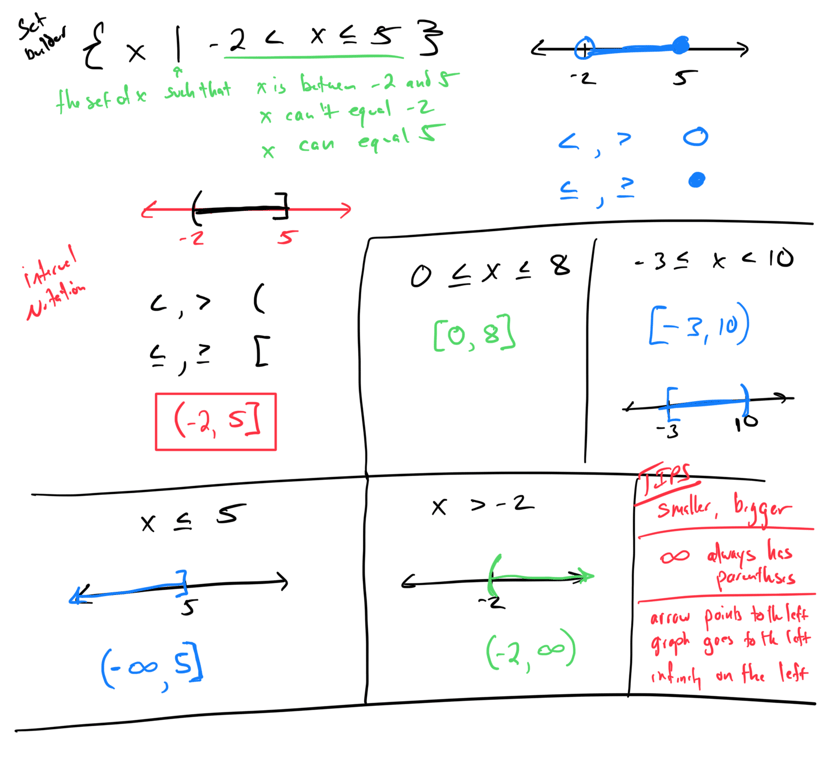 Set
Builder
{ x | -2 < x ≤ 5 }
the set of x such that x is between -2 and 5
x can't equal -2
x can equal 5
-2 5
<, > ○
≤, ≥ ●
Interval
Notation
-2 5
<, > (
≤, ≥ [
(-2, 5]
0 ≤ x ≤ 8
[0, 8]
-3 ≤ x < 10
[-3, 10)
-3 10
x ≤ 5
5
(-∞, 5]
x > -2
-2
(-2, ∞)
TIPS
smaller, bigger
∞ always has
parentheses
arrow points to the left
graph goes to the left
infinity on the left